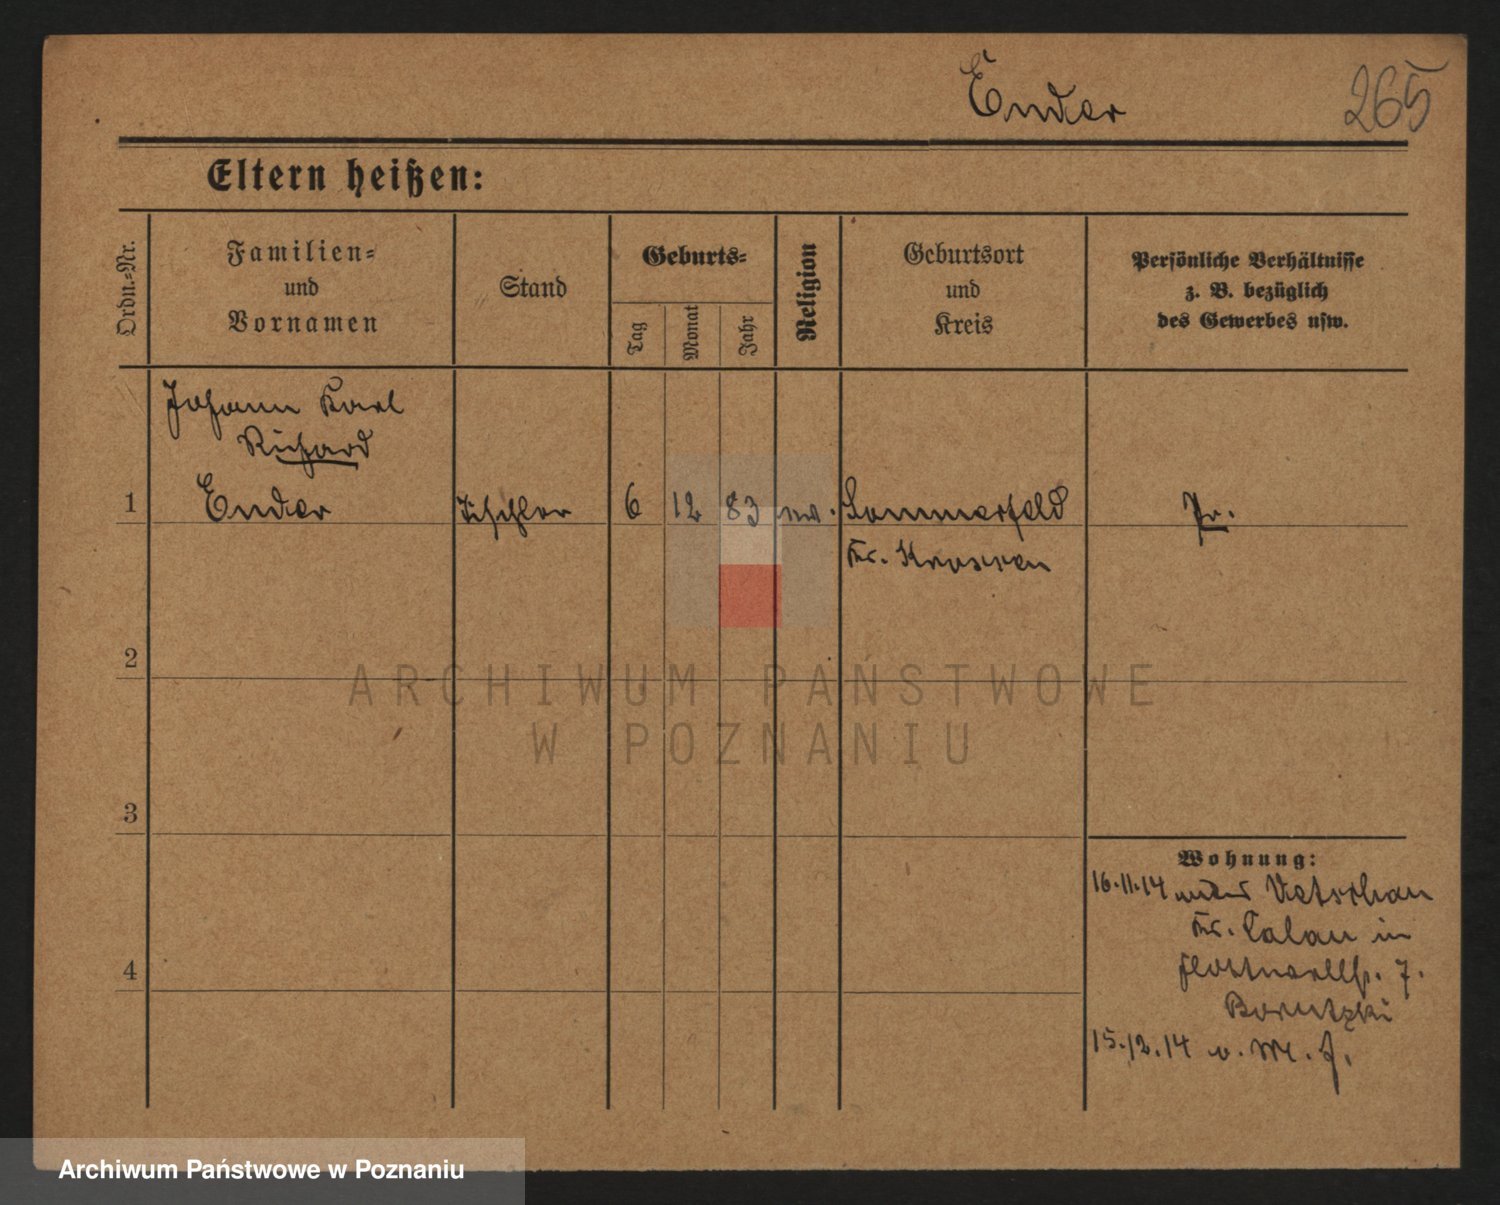 Ender
265
Eltern heißen:
Ordn.-Nr.
Familien-
und
Vornamen
Stand
Geburts-
Tag
Monat
Jahr
Religion
Geburtsort
und
Kreis
Persönliche Verhältnisse
z. B. bezüglich
des Gewerbes usw.
Johann Karl
Richard
1 Ender Tischler 6 12 83 ev. Sommerfeld Pr.
Kr. Krossen
2
3
4
Wohnung:
16.11.14 Vetschau
Kr. Calau in
7.
Borutzki
15.12.14 v.
ARCHIWUM PAŃSTWOWE
W POZNANIU
Archiwum Państwowe w Poznaniu